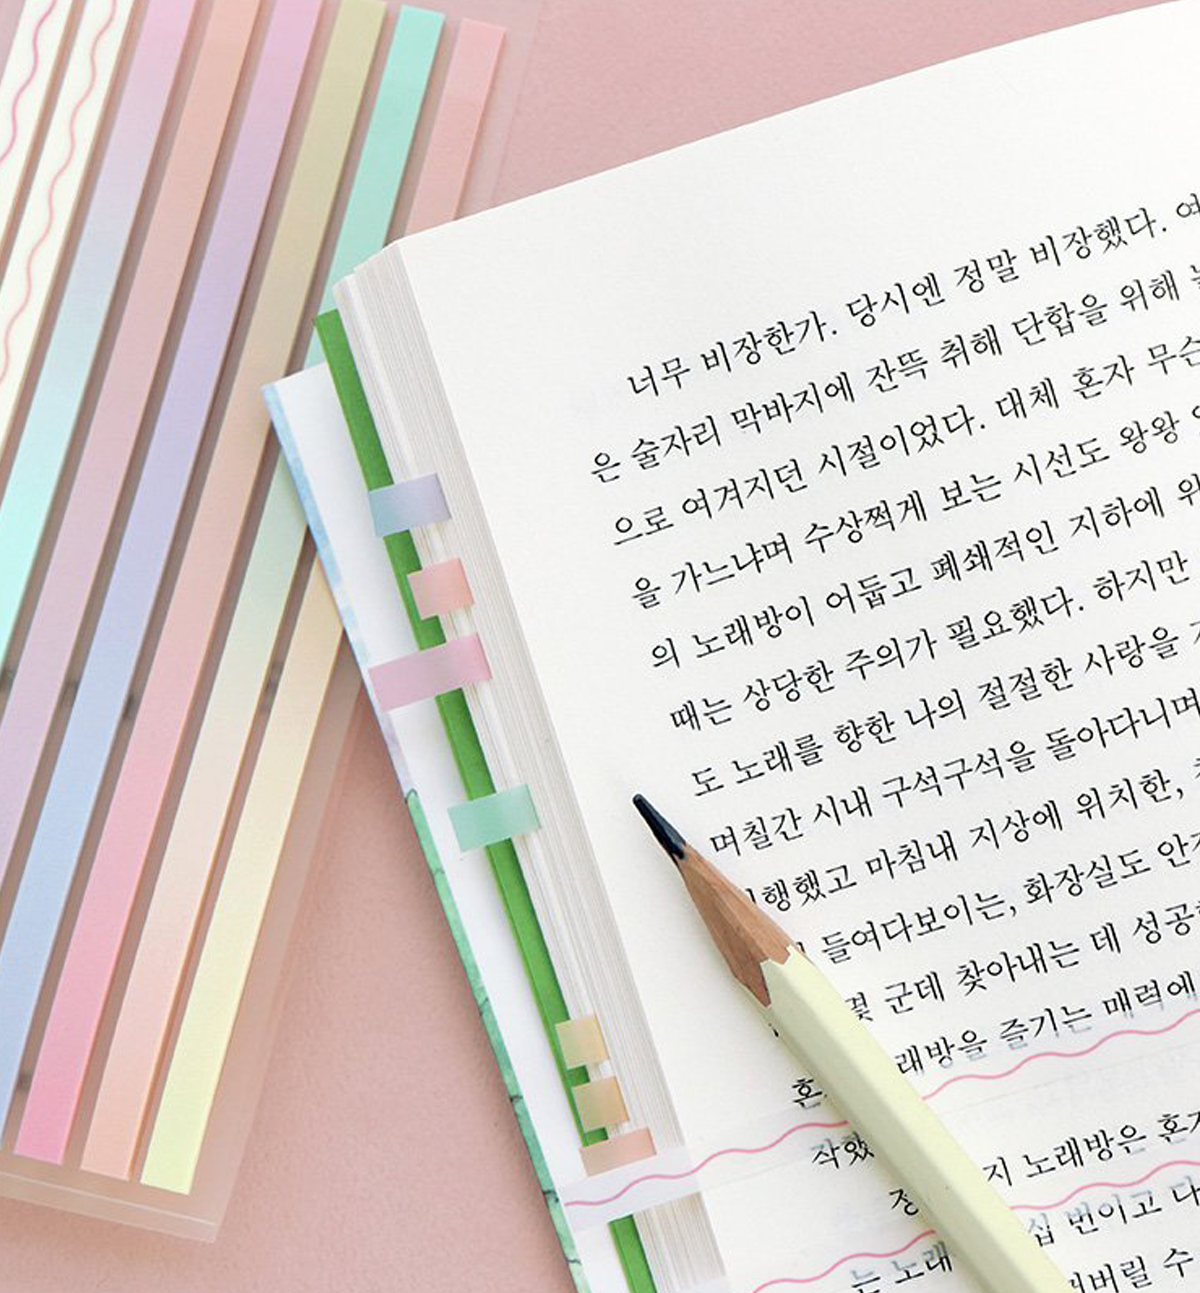 너무 비장한가. 당시엔 정말 비장했다.
은 술자리 막바지에 잔뜩 취해 단합을 위해
으로 여겨지던 시절이었다. 대체 혼자 무슨
을 가느냐며 수상쩍게 보는 시선도 왕왕
의 노래방이 어둡고 폐쇄적인 지하에
때는 상당한 주의가 필요했다. 하지만
도 노래를 향한 나의 절절한 사랑을
며칠간 시내 구석구석을 돌아다니며
행했고 마침내 지상에 위치한,
들여다보이는, 화장실도
몇 군데 찾아내는 데
래방을 즐기는 매력에
혼
작했 지 노래방은
정 십 번이고
는 노래 버릴 수